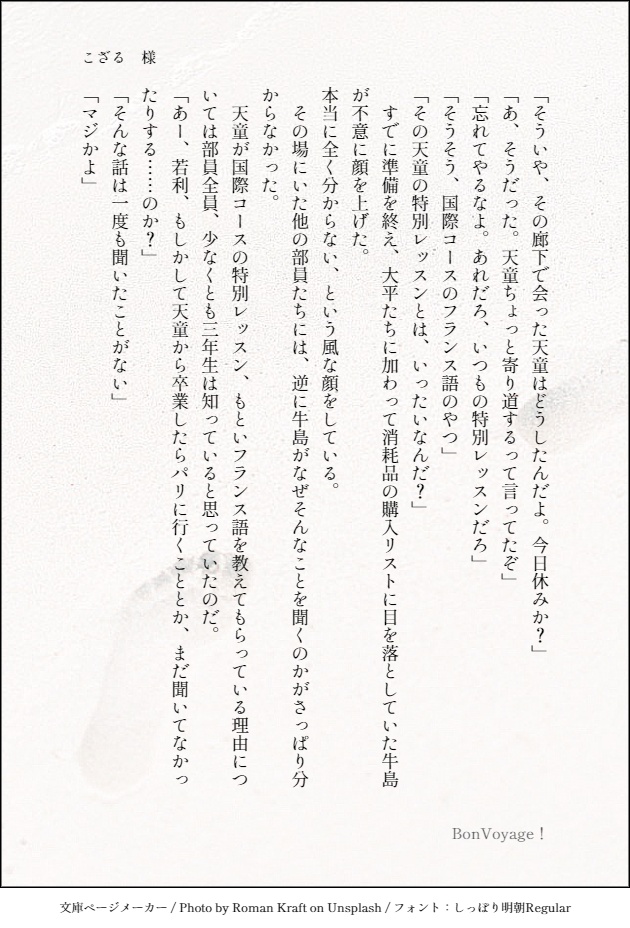 こざる　様
「そういや、その廊下で会った天童はどうしたんだよ。今日休みか？」
「あ、そうだった。天童ちょっと寄り道するって言ってたぞ」
「忘れてやるなよ。あれだろ、いつもの特別レッスンだろ」
「そうそう、国際コースのフランス語のやつ」
「その天童の特別レッスンとは、いったいなんだ？」
　すでに準備を終え、大平たちに加わって消耗品の購入リストに目を落としていた牛島
が不意に顔を上げた。
本当に全く分からない、という風な顔をしている。
　その場にいた他の部員たちには、逆に牛島がなぜそんなことを聞くのかがさっぱり分
からなかった。
　天童が国際コースの特別レッスン、もといフランス語を教えてもらっている理由につ
いては部員全員、少なくとも三年生は知っていると思っていたのだ。
「あー、若利、もしかして天童から卒業したらパリに行くこととか、まだ聞いてなかっ
たりする……のか？」
「そんな話は一度も聞いたことがない」
「マジかよ」
BonVoyage！
文庫ページメーカー / Photo by Roman Kraft on Unsplash / フォント：しっぽり明朝Regular